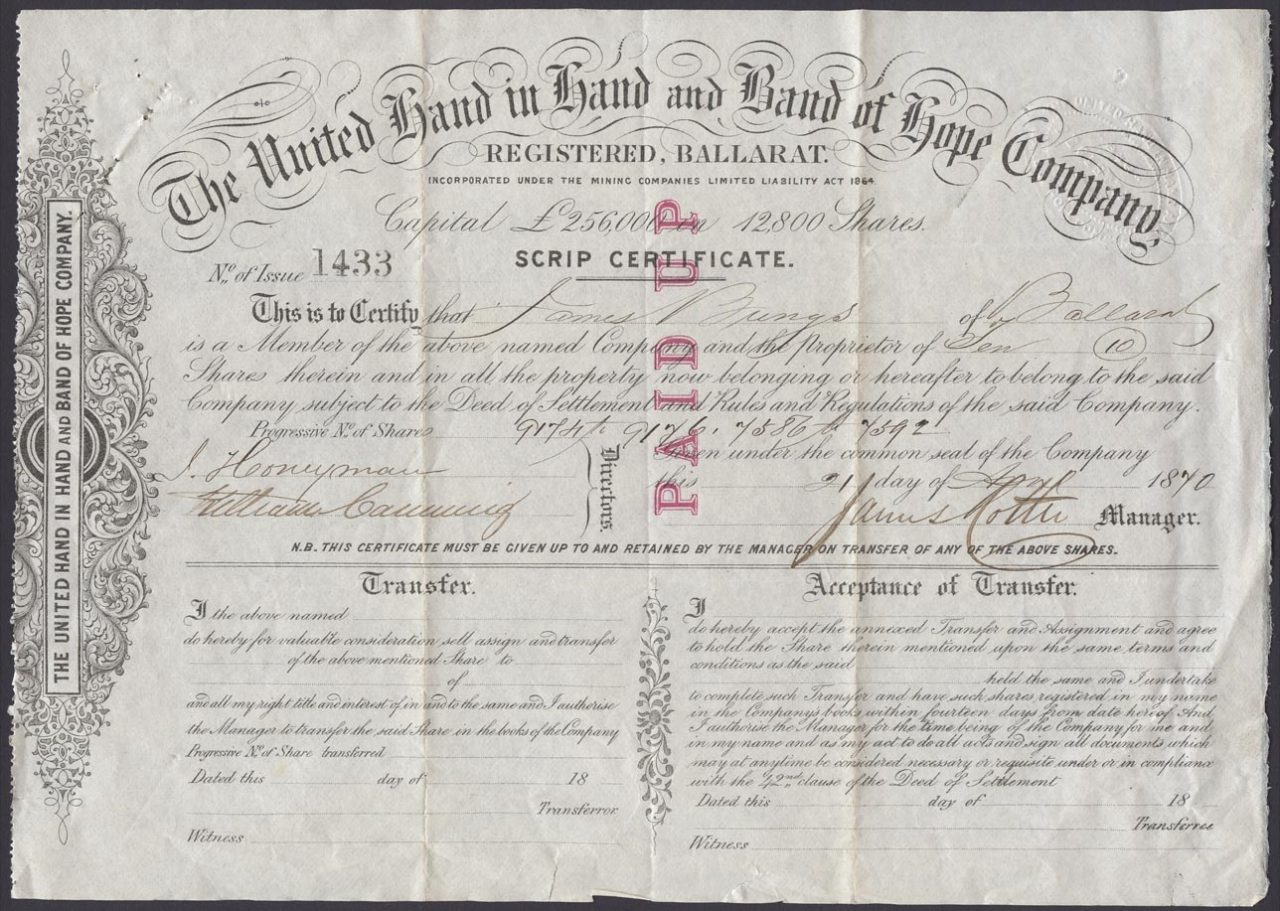 The United Hand in Hand and Band of Hope Company,
REGISTERED, BALLARAT.
INCORPORATED UNDER THE MINING COMPANIES LIMITED LIABILITY ACT 1864.
Capital £256,000 in 12,800 Shares.
SCRIP CERTIFICATE.
No. of Issue 1433
This is to Certify that James of Ballarat
is a Member of the above named Company and the Proprietor of Ten (10)
Shares therein and in all the property now belonging or hereafter to belong to the said
Company subject to the Deed of Settlement and Rules and Regulations of the said Company.
Progressive No. of Shares 9174 to 9176. 7586 to 7592
Given under the common seal of the Company
J. Honeyman
William Canning
Directors.
this 21 day of April 1870
James Cotter Manager.
PAID UP
N.B. THIS CERTIFICATE MUST BE GIVEN UP TO AND RETAINED BY THE MANAGER ON TRANSFER OF ANY OF THE ABOVE SHARES.
THE UNITED HAND IN HAND AND BAND OF HOPE COMPANY.
Transfer.
I the above named
do hereby for valuable consideration sell assign and transfer
of the above mentioned Share to
of
and all my right title and interest of in and to the same and I authorise
the Manager to transfer the said Share in the books of the Company
Progressive No. of Share transferred
Dated this day of 18
Transferror
Witness
Acceptance of Transfer.
I
do hereby accept the annexed Transfer and Assignment and agree
to hold the Share therein mentioned upon the same terms and
conditions as the said
held the same and I undertake
to complete such Transfer and have such shares registered in my name
in the Company's books within fourteen days from date hereof And
I authorise the Manager for the time being of the Company for me and
in my name and as my act to do all acts and sign all documents which
may at anytime be considered necessary or requisite under or in compliance
with the 42nd clause of the Deed of Settlement
Dated this day of 18
Transferree
Witness